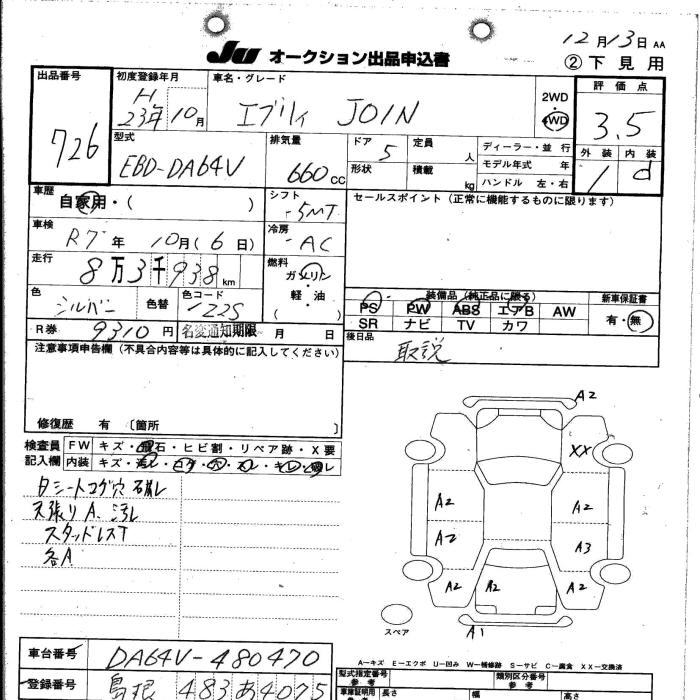 12月13日 AA
JU オークション出品申込書
② 下見用
出品番号
726
初度登録年月
H
23年10月
車名・グレード
エブリィ JOIN
2WD
4WD
評価点
3.5
外装 内装
1 d
型式
EBD-DA64V
排気量
660cc
ドア
5
定員
人
形状
積載
kg
ディーラー・並行
モデル年式 年
ハンドル 左・右
車歴
自家用・( )
シフト
5MT
セールスポイント (正常に機能するものに限ります)
車検
R7年 10月(6日)
冷房
AC
走行
8万3千938km
燃料
ガソリン
軽・油
( )
色
シルバー
色替
色コード
Z2S
装備品(純正品に限る)
新車保証書
PS PW ABS エアB AW
SR ナビ TV カワ
有・無
R券 9310円
名変通知期限 月 日
後日品
取説
注意事項申告欄 (不具合内容等は具体的に記入してください)
修復歴 有 〔箇所 〕
検査員
記入欄
FW キズ・飛石・ヒビ割・リペア跡・X要
内装 キズ・汚レ・コゲ・穴・スレ・キレ・破レ
天張り A、汚レ
スタッドレスT
各A
A2
XX
A2
A2
A2
A3
A2
A2
A2
A1
スペア
A―キズ E―エクボ U―凹み W―補修跡 S―サビ C―腐食 XX―交換済
車台番号
DA64V-480470
登録番号
島根 483 あ 4075
型式指定番号
参考
類別区分番号
車庫証明用
参考
長さ
幅
高さ